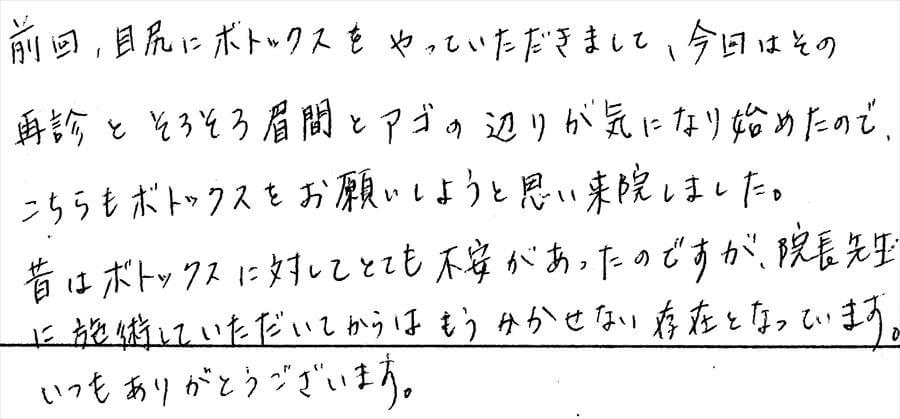 前回、目尻にボトックスをやっていただきまして、今回はその
再診とそろそろ眉間とアゴの辺りが気になり始めたので、
こちらもボトックスをお願いしようと思い来院しました。
昔はボトックスに対してとても不安があったのですが、院長先生
に施術していただいてからはもうかかせない存在となっています。
いつもありがとうございます。